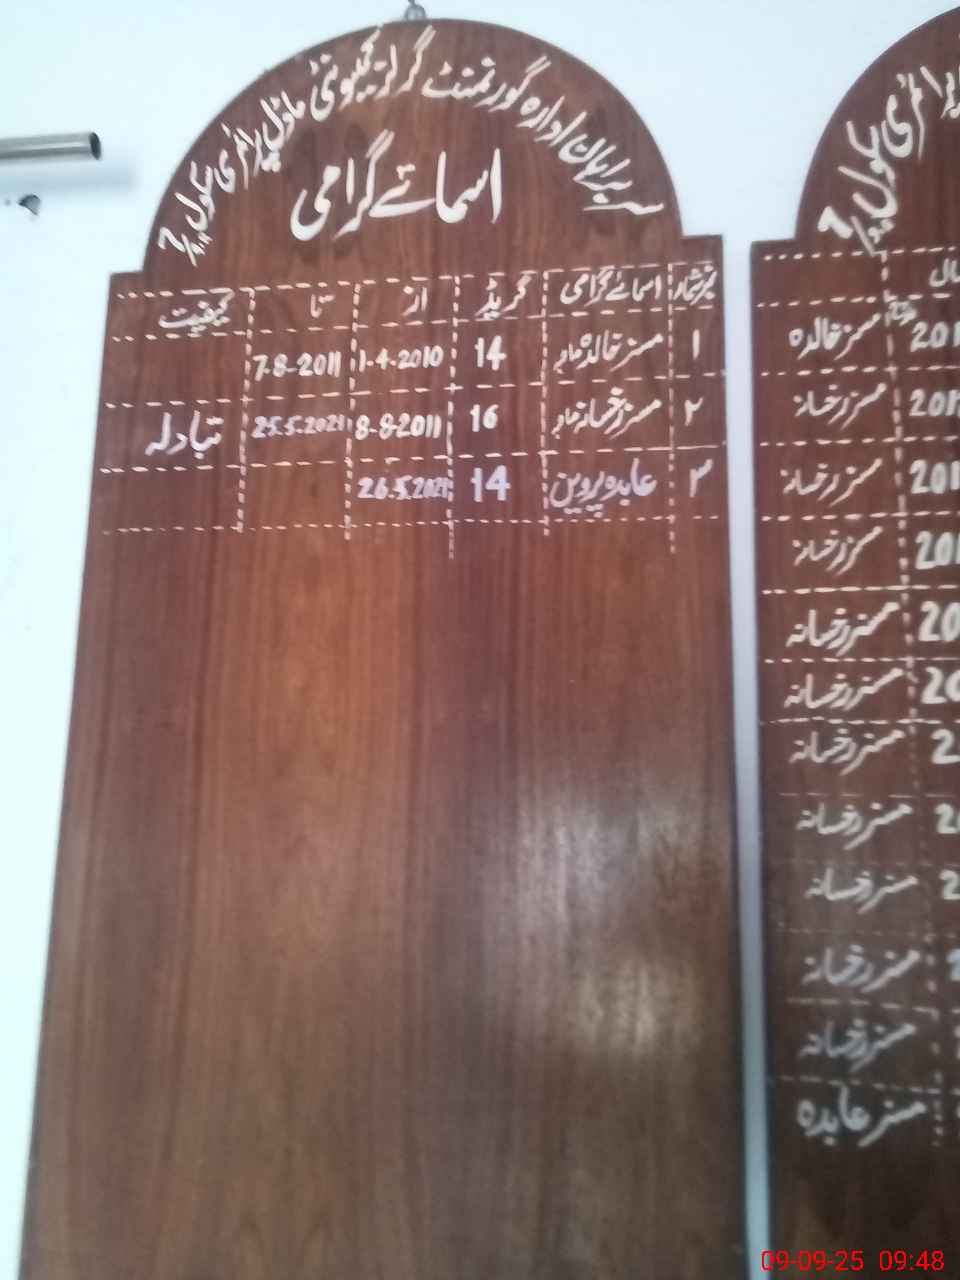 سربراہان ادارہ گورنمنٹ گرلز کمیونٹی ماڈل پرائمری سکول
اسمائے گرامی
نمبر شمار اسمائے گرامی گریڈ از تا کیفیت
۱ مسز خالدہ 14 1-4-2010 7-8-2011
۲ مسز رخسانہ 16 8-8-2011 25.5.2021 تبادلہ
۳ عابدہ پروین 14 26.5.2021
پرائمری سکول
سال
مسز خالدہ
مسز رخسانہ
مسز رخسانہ
مسز رخسانہ
مسز رخسانہ
مسز رخسانہ
مسز رخسانہ
مسز رخسانہ
مسز رخسانہ
مسز رخسانہ
مسز رخسانہ
مسز عابدہ
09-09-25 09:48